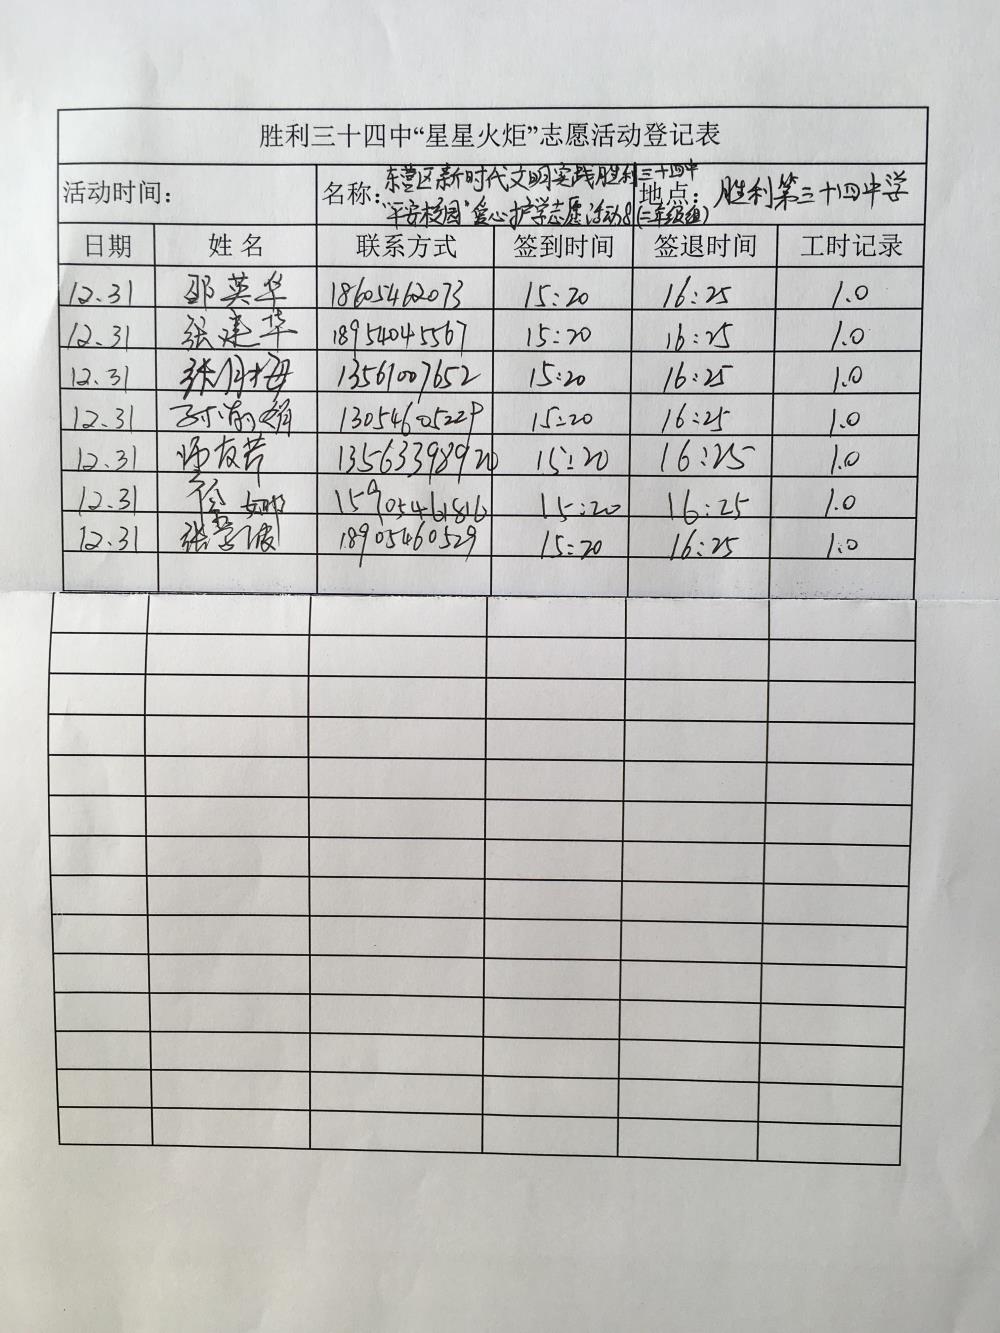 胜利三十四中“星星火炬”志愿活动登记表
活动时间： 名称：东营区新时代文明实践胜利三十四中 地点：胜利第三十四中学
“平安校园”爱心护学志愿活动8(二年级组)
日期 姓名 联系方式 签到时间 签退时间 工时记录
12.31 邵英华 18605462073 15:20 16:25 1.0
12.31 张建华 18954045567 15:20 16:25 1.0
12.31 张月梅 13561007652 15:20 16:25 1.0
12.31 13054605229 15:20 16:25 1.0
12.31 师友芹 13563398920 15:20 16:25 1.0
12.31 徐娜 15905461816 15:20 16:25 1.0
12.31 张学波 18905460529 15:20 16:25 1.0